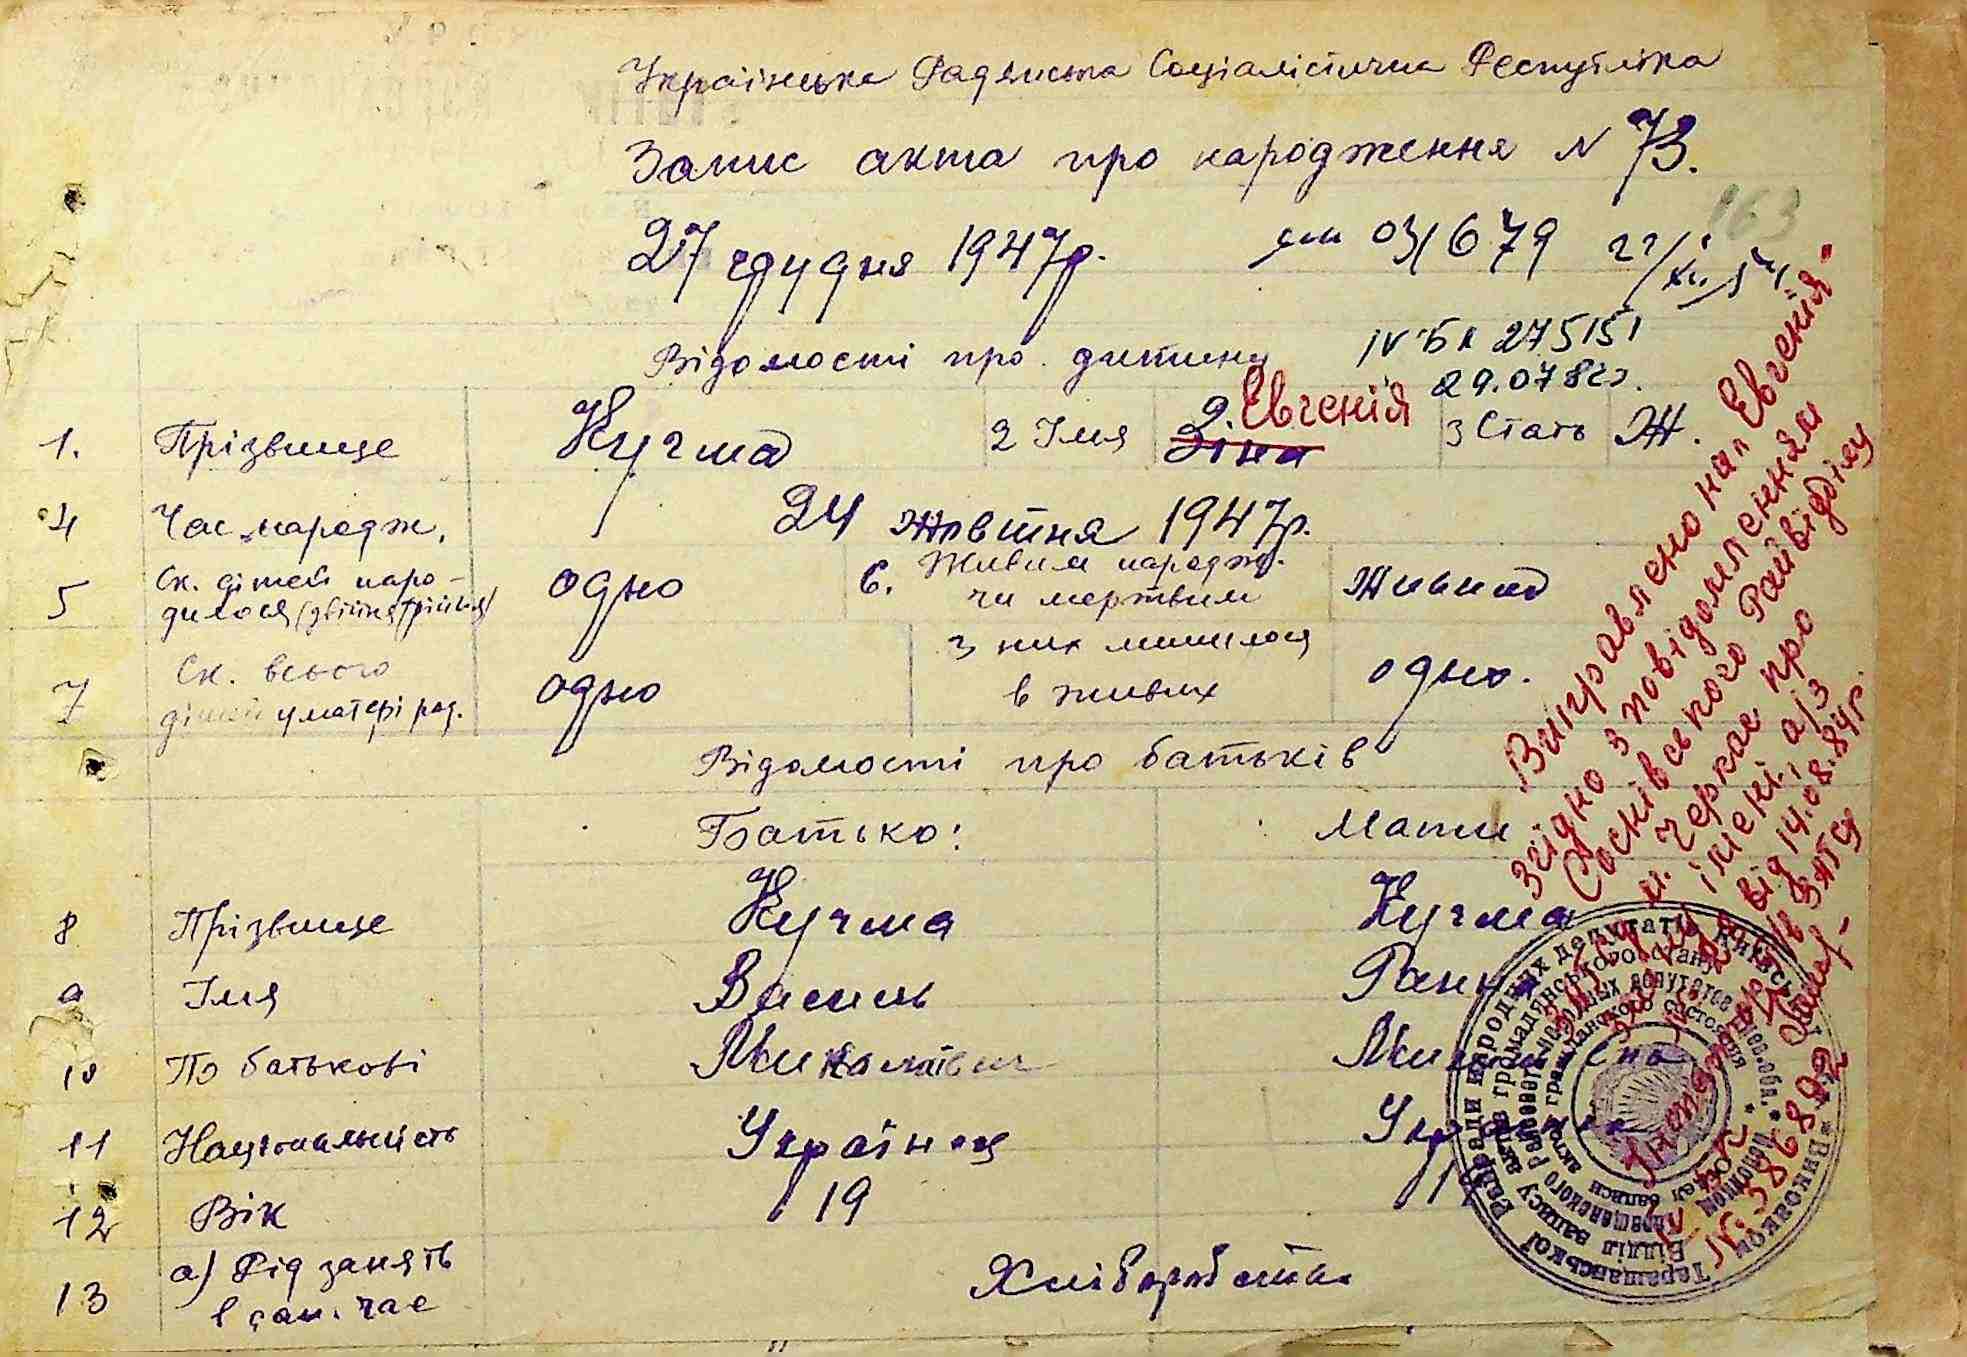 Українська Радянська Соціалістична Республіка
Запис акта про народження N 73.
163
27 грудня 1947р.
031679
Відомості про дитину
IV БК 275151
29.07.82
1. Прізвище Кучма 2 Імя Зіна Евгенія 3 Стать Ж.
4 Час народж. 24 жовтня 1947р.
5 Ск. дітей наро-
дилося (двійня, трійня) одно 6. Живим народж.
чи мертвим живим
7 Ск. всього
дітей у матері род. одно з них лишилося
в живих одно.
Відомості про батьків
Батько: Мати
8 Прізвище Кучма Кучма
9 Імя Василь
10 По батькові Миколаївич
11 Національність Українец
12 Вік 19
13 а) Рід занять
в дан. час Хліборобство
Виправлено на "Евгенія"
згідно з повідомленням
Соснівського Райвідділу
м. Черкас про
а/з
від 14.08.84г.
ЗАГСу
N: 386892
Виконком Таращанської Ради народних депутатів Київської
Відділ запису актів громадянського стану